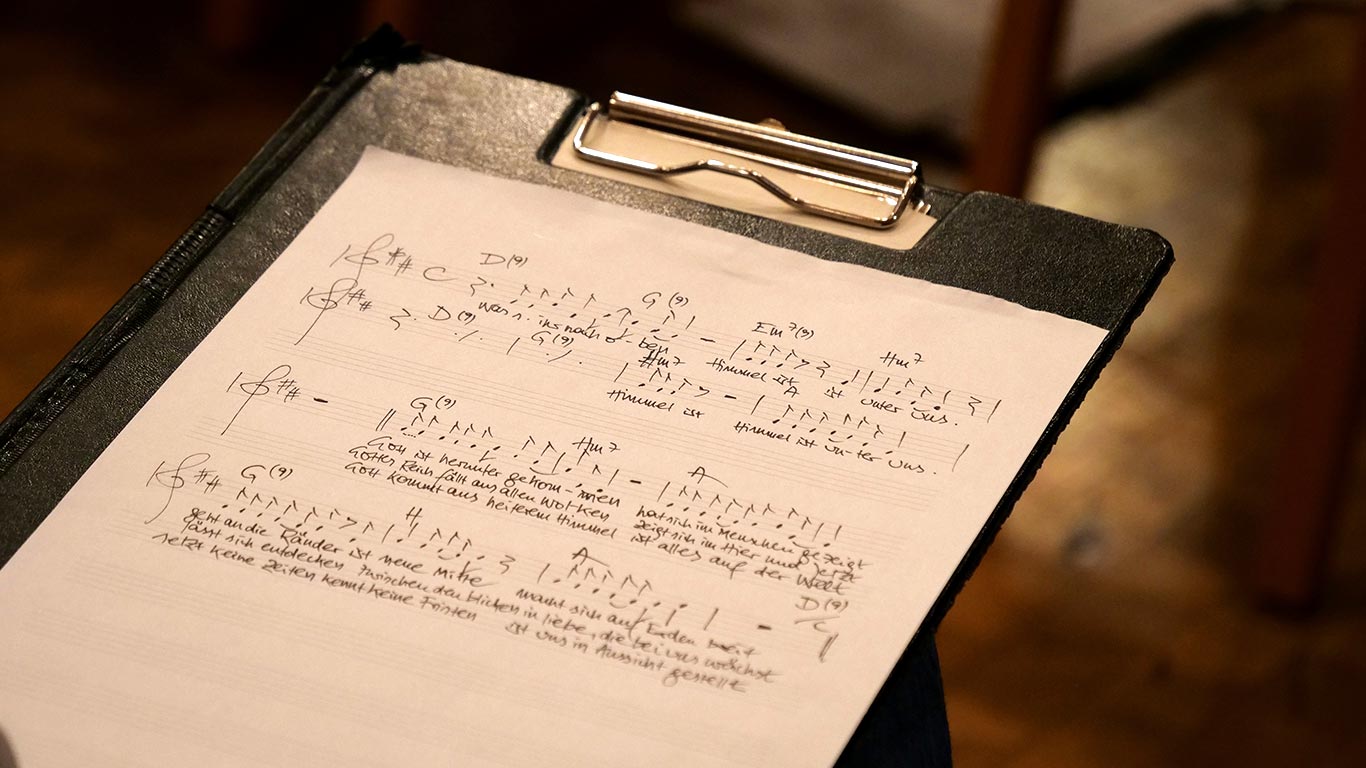 D(9) G(9) Em7(9) Hm7
was ins nach o-ben Himmel ist ist unter uns.
D(9) G(9) Hm7 A
Himmel ist Himmel ist un-ter uns.
G(9) Hm7 A
Gott ist herunter gekom-men hat sich im Menschen gezeigt
Gottes Reich fällt aus allen Wolken zeigt sich im Hier und Jetzt
Gott kommt aus heiterem Himmel ist alles auf der Welt
G(9) H A D(9)/C
geht an die Ränder ist neue Mitte macht sich auf Erden breit
lässt sich entdecken zwischen den blicken in liebe, die bei uns wächst
setzt keine Zeiten kennt keine Fristen ist uns in Aussicht gestellt